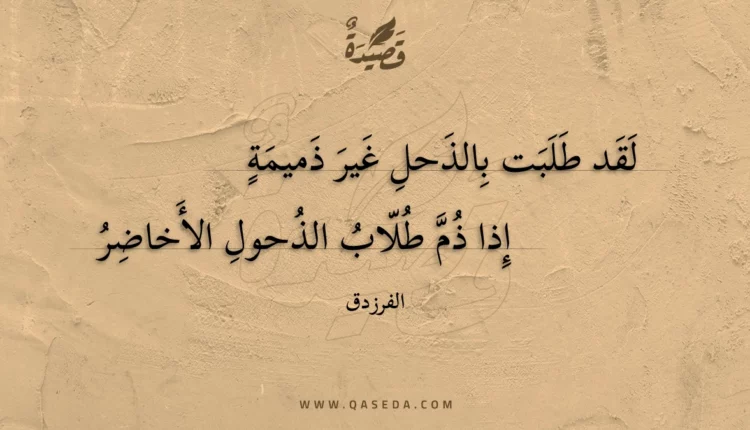 قَصِيدَةٌ
لَقَد طَلَبَت بِالذَحلِ غَيرَ ذَميمَةٍ
إِذا ذُمَّ طُلّابُ الذُحولِ الأَخاضِرُ
الفرزدق
WWW.QASEDA.COM